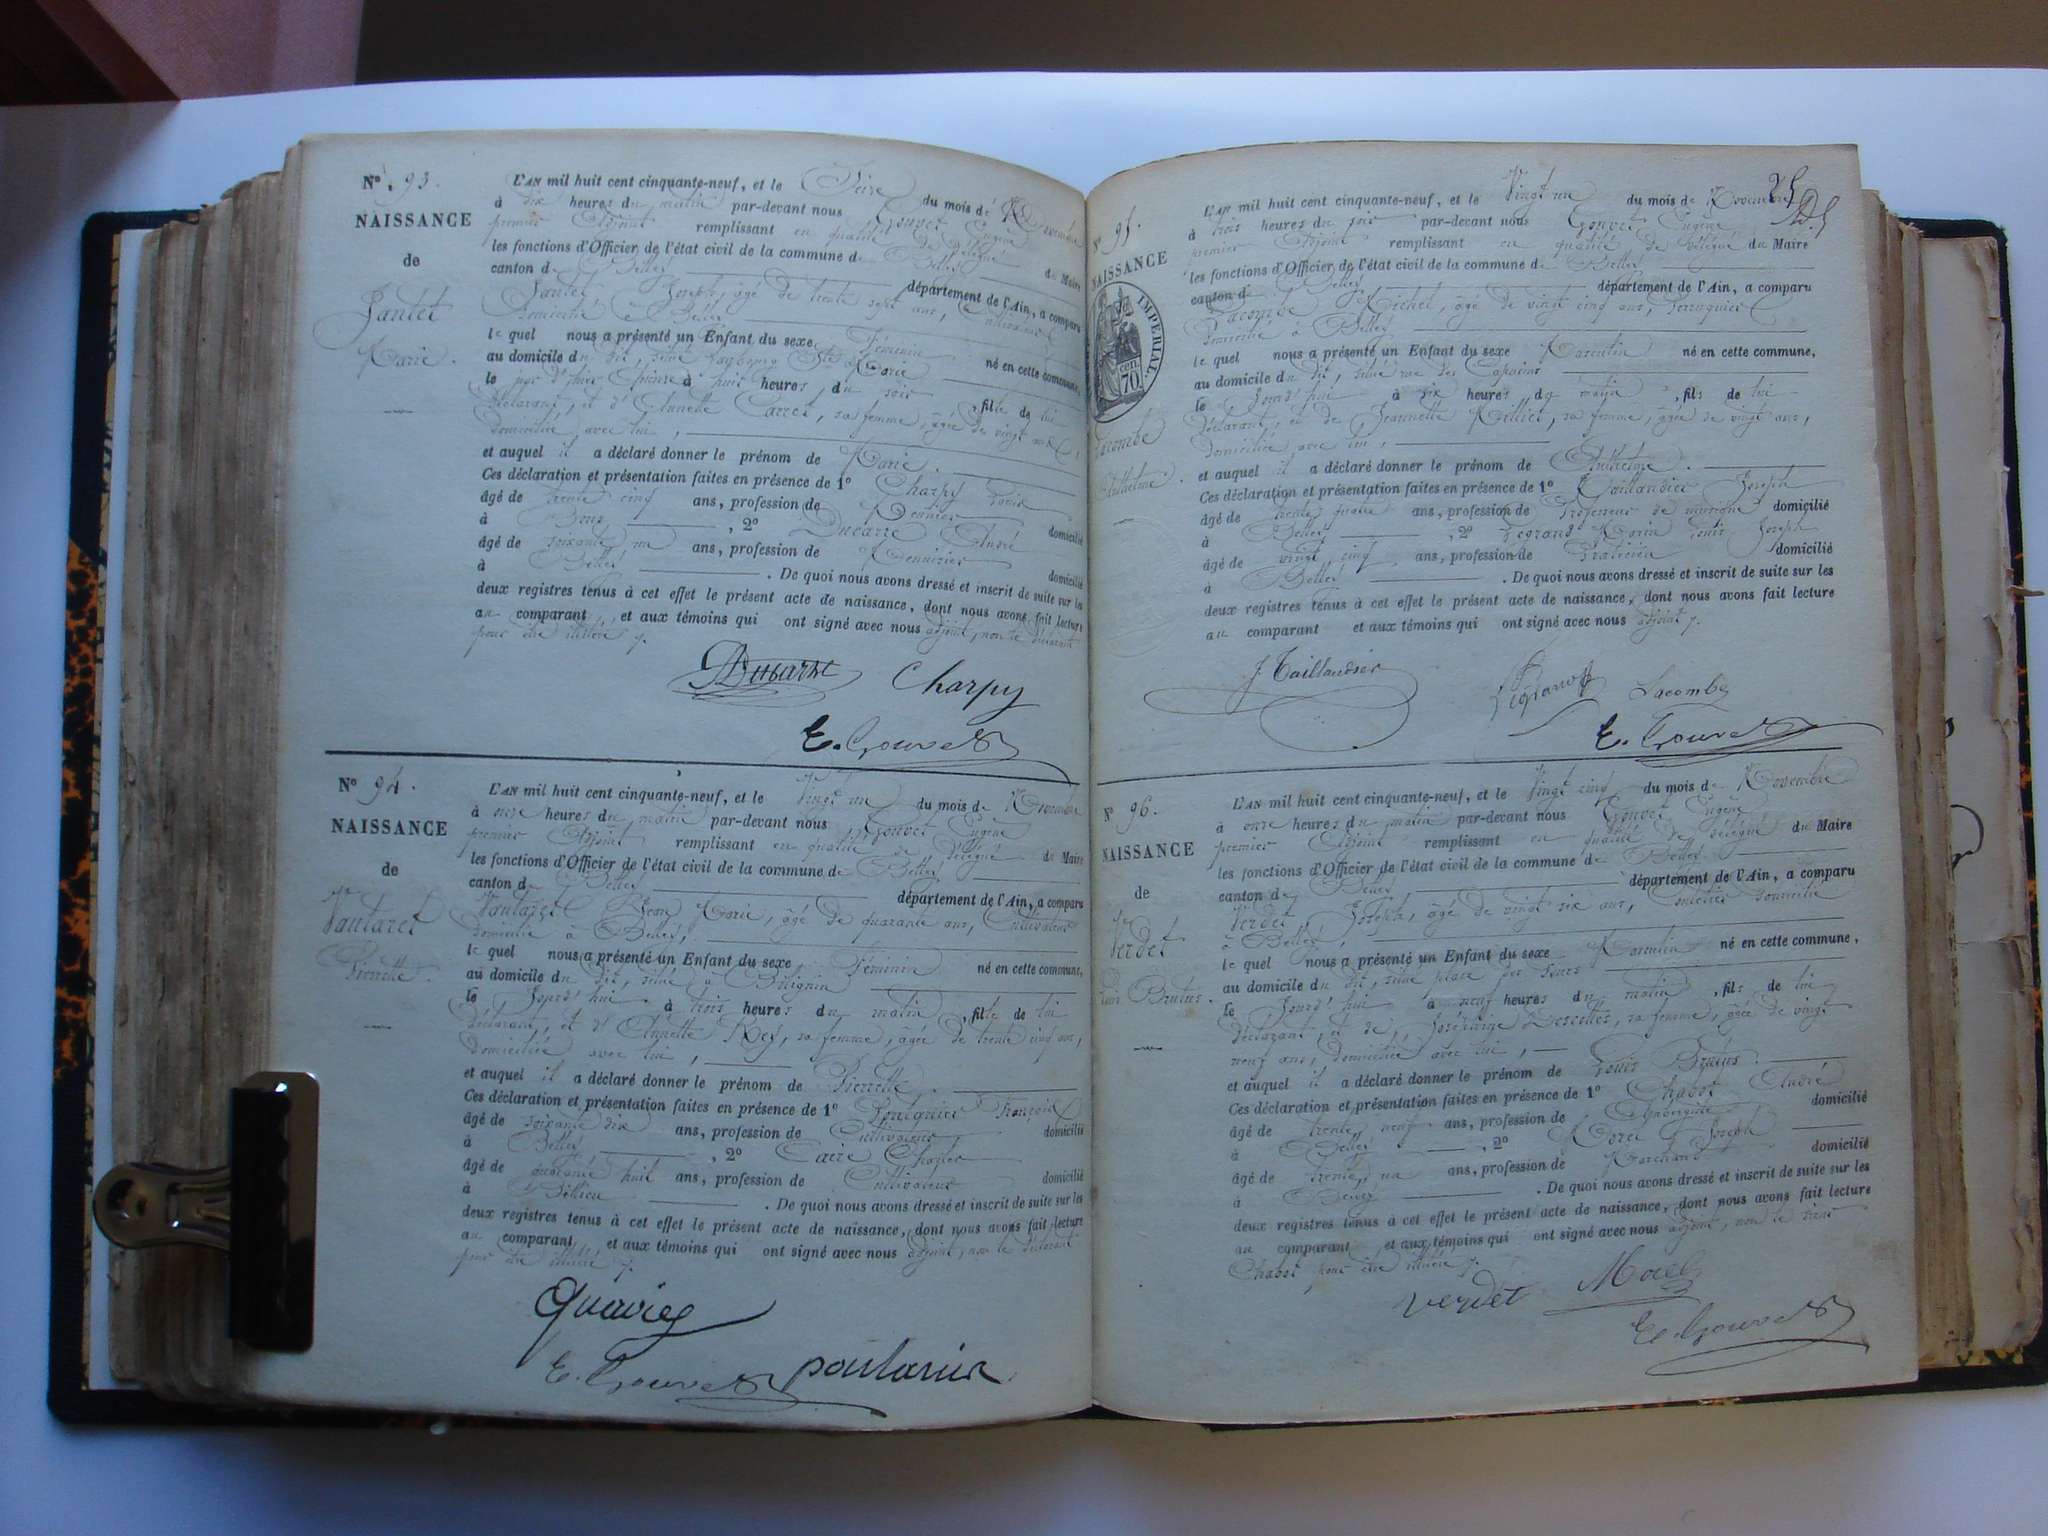 Nº 93.
NAISSANCE
de
Jantet
Marie.
L'AN mil huit cent cinquante-neuf, et le Seize du mois de Novembre
à dix heures du matin par-devant nous Gouvet Eugène
premier Adjoint remplissant en qualité de délégué du Maire
les fonctions d'Officier de l'état civil de la commune de Belley
canton de Belley département de l'Ain, a comparu
Jantet Joseph, âgé de trente sept ans, Cultivateur
domicilié à Belley
le quel nous a présenté un Enfant du sexe Féminin
au domicile du dit, situé faubourg Ste Marie né en cette commune,
le jour d'hier à huit heures du soir, fille de lui
déclarant, et d'Annette Carret, sa femme, âgée de vingt
domiciliée avec lui,
et auquel il a déclaré donner le prénom de Marie.
Ces déclaration et présentation faites en présence de 1º Charpy Louis
âgé de trente cinq ans, profession de domicilié
à Bons, 2º Ducarre André
âgé de soixante un ans, profession de Menuisier domicilié
à Belley. De quoi nous avons dressé et inscrit de suite sur les
deux registres tenus à cet effet le présent acte de naissance, dont nous avons fait lecture
au comparant, et aux témoins qui ont signé avec nous adjoint, non le déclarant
pour être illitéré
Charpy
E. Gouvet
Nº 94.
NAISSANCE
de
Vautaret
Pierrette.
L'AN mil huit cent cinquante-neuf, et le Vingt un du mois de Novembre
à onze heures du matin par-devant nous Gouvet Eugène
premier Adjoint remplissant en qualité de délégué du Maire
les fonctions d'Officier de l'état civil de la commune de Belley
canton de Belley département de l'Ain, a comparu
Vautaret Jean Marie, âgé de quarante ans, Cultivateur
domicilié à Belley,
le quel nous a présenté un Enfant du sexe Féminin né en cette commune,
au domicile du dit, situé à Billignin
le Jourd'hui à trois heures du matin, fille de lui
déclarant, et d'Annette Rey, sa femme, âgée de trente cinq ans,
domiciliée avec lui,
et auquel il a déclaré donner le prénom de Pierrette.
Ces déclaration et présentation faites en présence de 1º François
âgé de soixante dix ans, profession de Cultivateur domicilié
à Belley, 2º
âgé de quarante huit ans, profession de Cultivateur domicilié
à. De quoi nous avons dressé et inscrit de suite sur les
deux registres tenus à cet effet le présent acte de naissance, dont nous avons fait lecture
au comparant et aux témoins qui ont signé avec nous adjoint, non le déclarant
pour être illitéré
E. Gouvet
Nº 95.
NAISSANCE
IMPERIAL.
cen.
70
Lacombe
Anthelme.
L'AN mil huit cent cinquante-neuf, et le Vingt un du mois de Novembre
à trois heures du soir par-devant nous Gouvet Eugène
premier Adjoint remplissant en qualité de délégué du Maire
les fonctions d'Officier de l'état civil de la commune de Belley
canton de Belley département de l'Ain, a comparu
Lacombe Michel, âgé de vingt cinq ans, Perruquier
domicilié à Belley
le quel nous a présenté un Enfant du sexe Masculin né en cette commune,
au domicile du dit, situé rue des Capucins
le Jourd'hui à six heures du matin, fils de lui
déclarant, et de Jeannette Milliet, sa femme, âgée de vingt ans,
domiciliée avec lui,
et auquel il a déclaré donner le prénom de Anthelme.
Ces déclaration et présentation faites en présence de 1º Taillandier Joseph
âgé de trente quatre ans, profession de Professeur de musique domicilié
à Belley, 2º Legrand Morin Louis Joseph
âgé de vingt cinq ans, profession de Praticien domicilié
à Belley. De quoi nous avons dressé et inscrit de suite sur les
deux registres tenus à cet effet le présent acte de naissance, dont nous avons fait lecture
au comparant et aux témoins qui ont signé avec nous adjoint
J Taillandier
Legrand Lacombe
E. Gouvet
Nº 96.
NAISSANCE
de
Verdet
Louis Brutus.
L'AN mil huit cent cinquante-neuf, et le Vingt cinq du mois de Novembre
à onze heures du matin par-devant nous Gouvet Eugène
premier Adjoint remplissant en qualité de délégué du Maire
les fonctions d'Officier de l'état civil de la commune de Belley
canton de Belley, département de l'Ain, a comparu
Verdet Joseph, âgé de vingt six ans, domicilié
à Belley,
le quel nous a présenté un Enfant du sexe Masculin né en cette commune,
au domicile du dit, situé place des
le Jourd'hui à neuf heures du matin, fils de lui
déclarant, et de Joséphine, sa femme, âgée de vingt
neuf ans, domiciliée avec lui,
et auquel il a déclaré donner le prénom de Louis Brutus.
Ces déclaration et présentation faites en présence de 1º Chabot André
âgé de trente neuf ans, profession de Aubergiste domicilié
à Belley, 2º Morel Joseph
âgé de trente un ans, profession de Marchand domicilié
à Belley. De quoi nous avons dressé et inscrit de suite sur les
deux registres tenus à cet effet le présent acte de naissance, dont nous avons fait lecture
au comparant et aux témoins qui ont signé avec nous adjoint, non le sieur
Chabot pour être illitéré
Verdet Morel
E. Gouvet